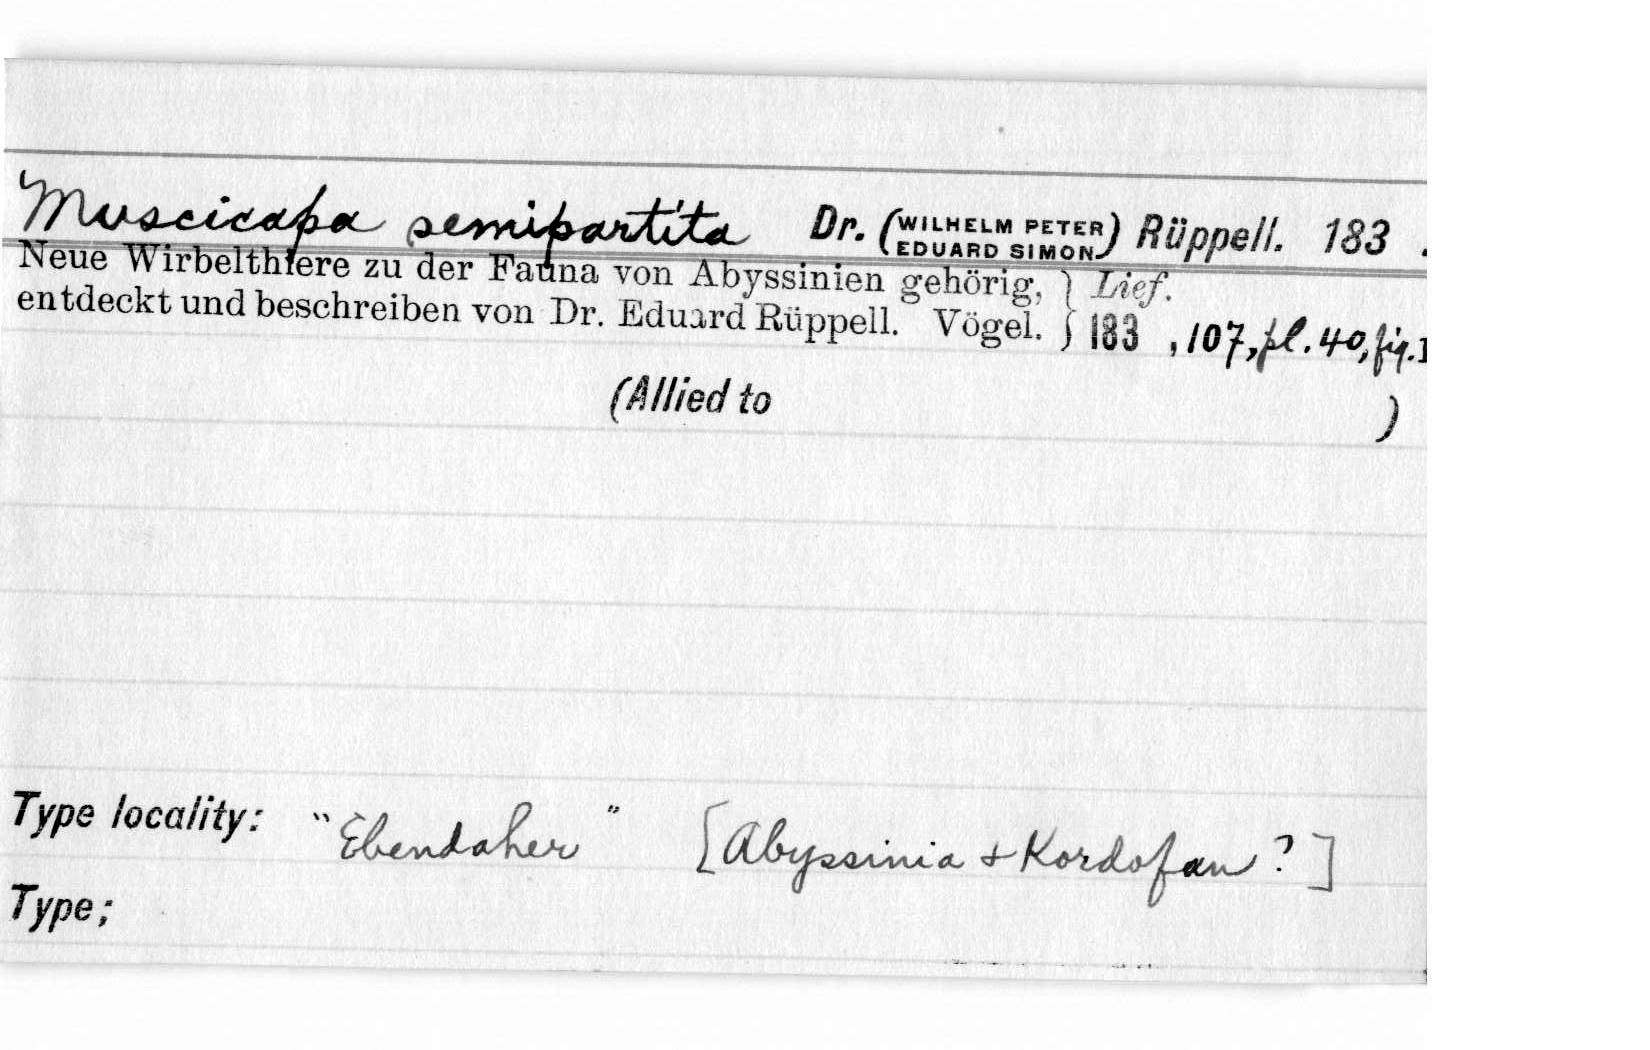 Muscicapa semipartita Dr. (WILHELM PETER EDUARD SIMON) Rüppell. 183 .
Neue Wirbelthiere zu der Fauna von Abyssinien gehörig, } Lief.
entdeckt und beschreiben von Dr. Eduard Rüppell. Vögel. } 183 , 107, pl. 40, fig. 1
(Allied to )
Type locality: "Ebendaher" [Abyssinia + Kordofan ?]
Type;